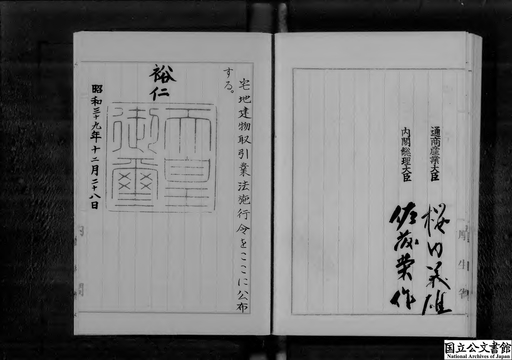 宅地建物取引業法施行令をここに公布
する。
裕仁
天皇
御璽
昭和三十九年十二月二十八日
通商産業大臣
桜内義雄
内閣総理大臣
佐藤栄作
国立公文書館
National Archives of Japan